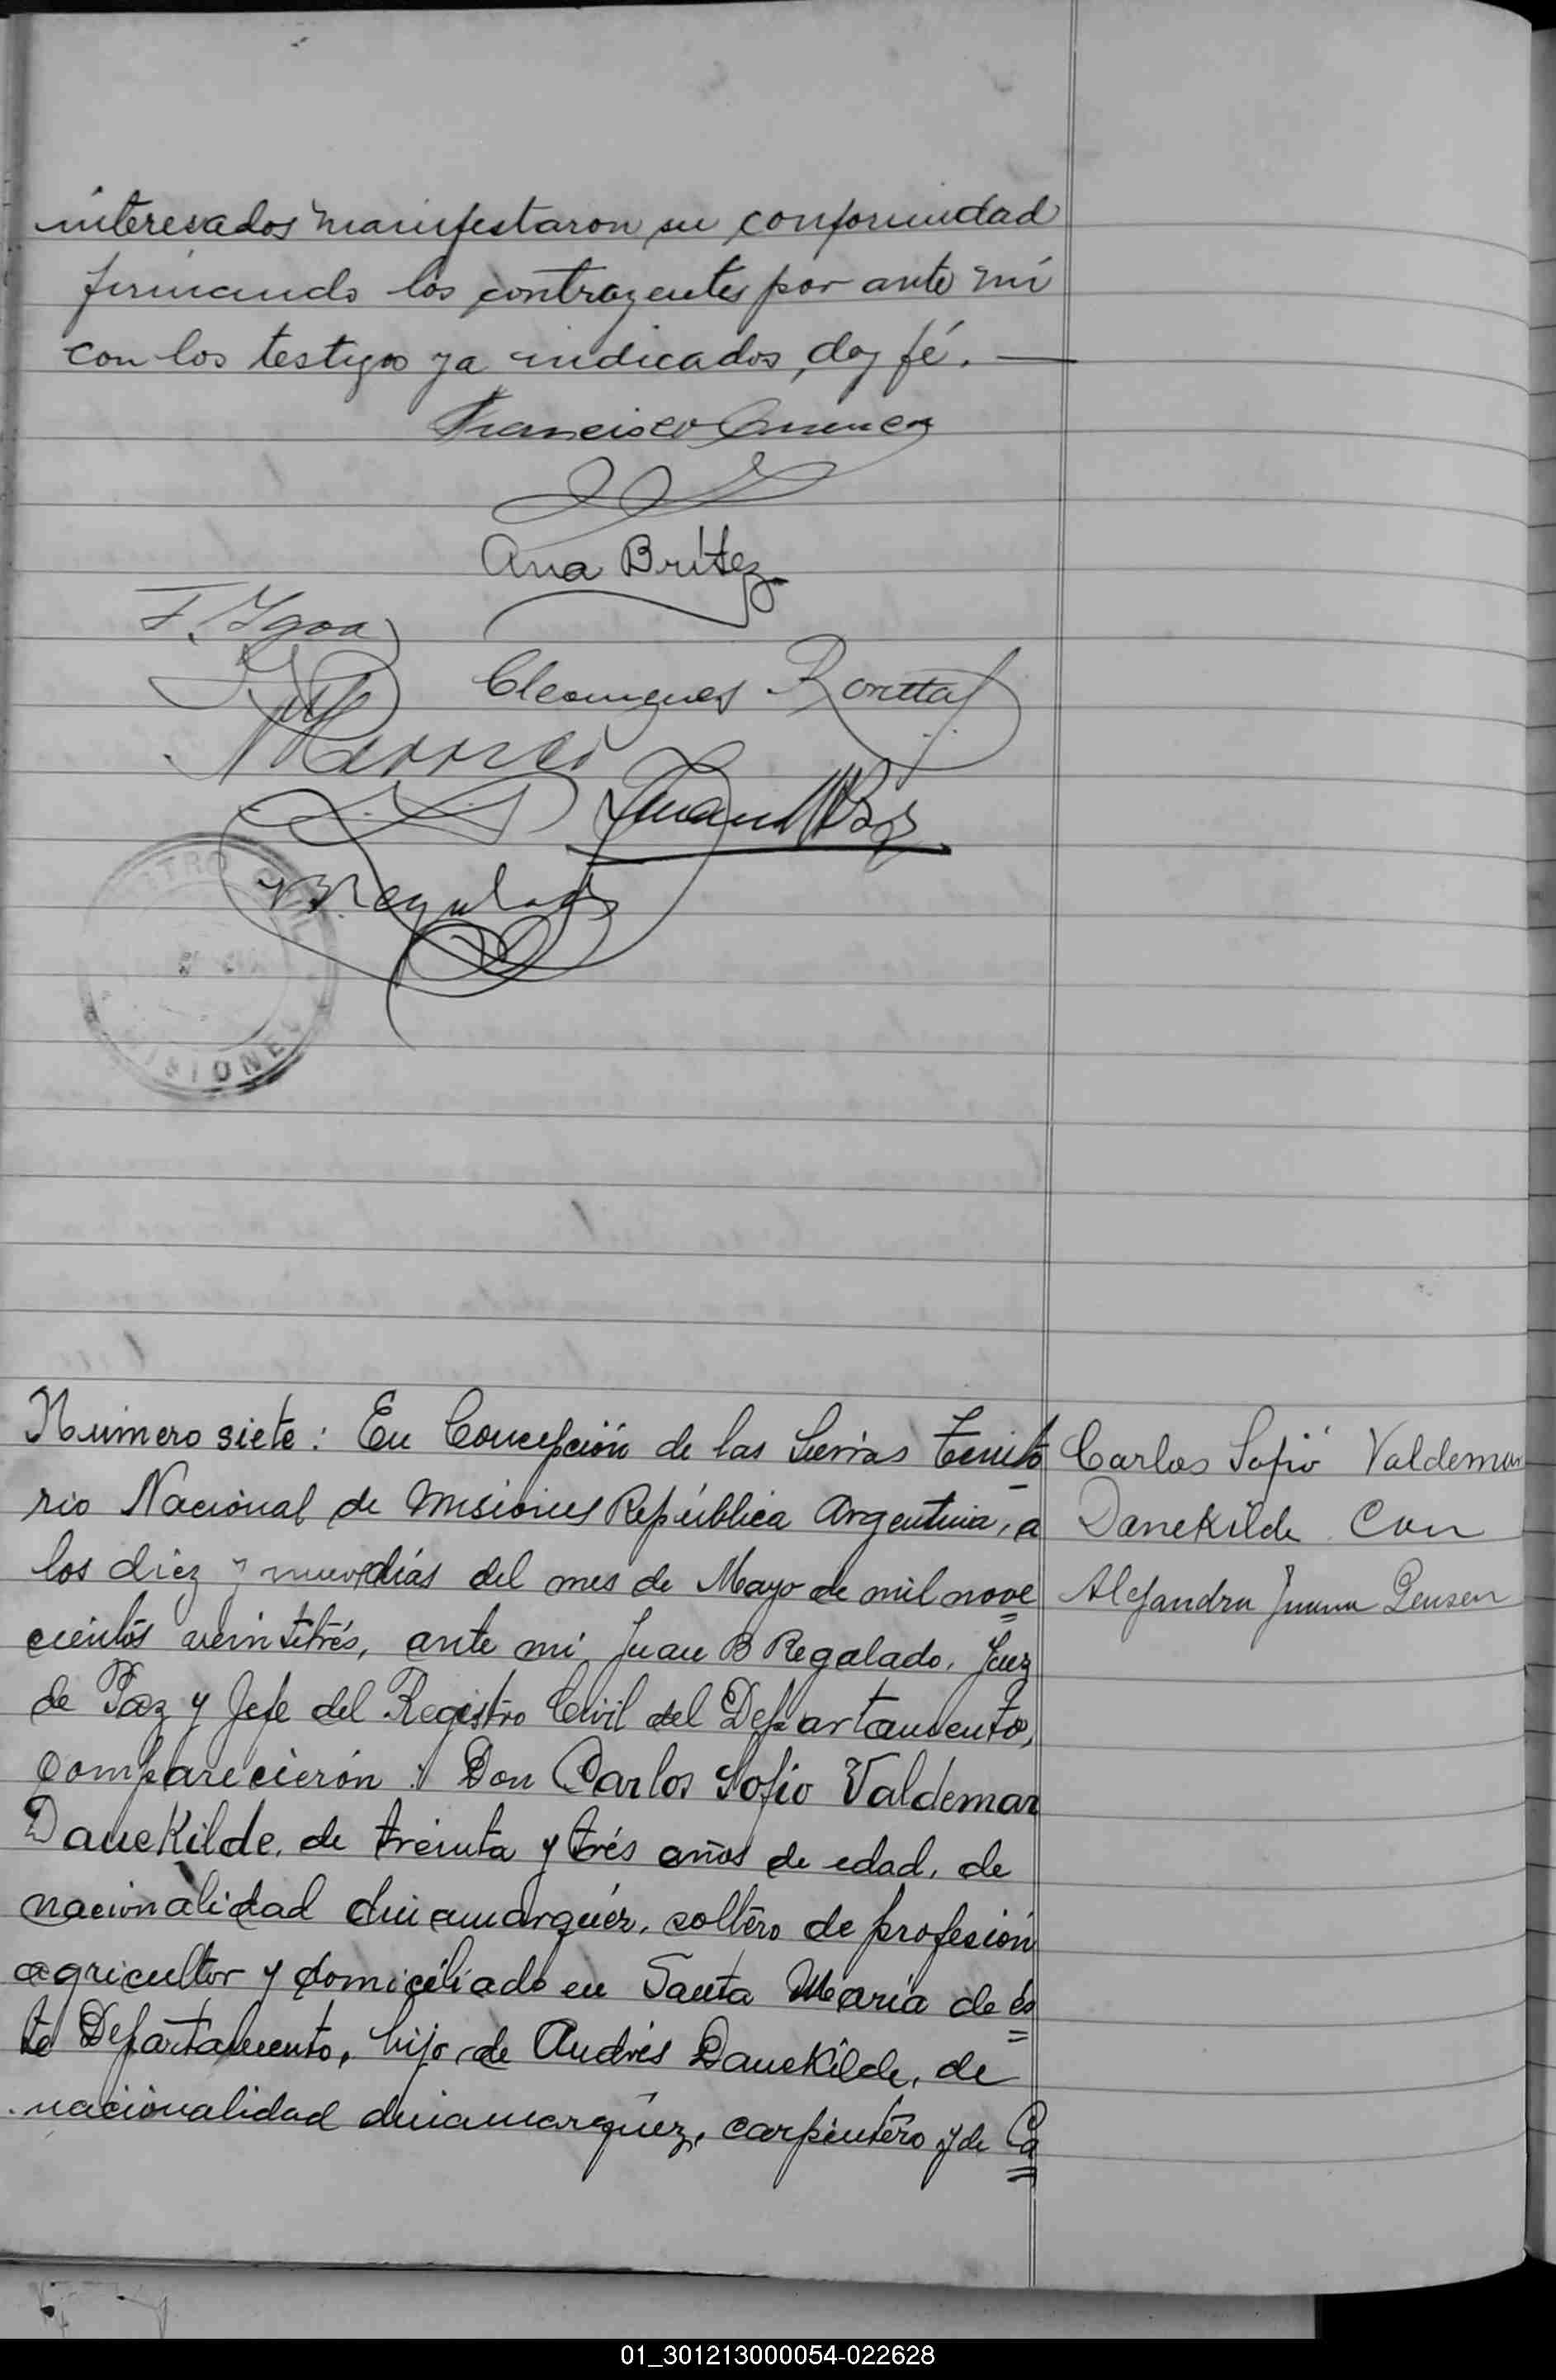 interesados manifestaron su conformidad
firmando los contrayentes por ante mi
con los testigos ya indicados, doy fé.
Francisco
Ana Britez
F. Ygoa
Cleomenes
Juan
Regalado
REGISTRO CIVIL
MISIONES
Número siete: En Concepción de las Sierras Territo
rio Nacional de Misiones República Argentina, a
los diez y nueve días del mes de Mayo de mil nove
cientos veintitrés, ante mi Juan B Regalado, Juez
de Paz y Jefe del Registro Civil del Departamento,
comparecierón: Don Carlos Sofio Valdemar
Danekilde, de treinta y trés años de edad, de
nacionalidad dinamarquéz, soltero de profesión
agricultor y domiciliado en Santa María de és
te Departamento, hijo de Andrés Danekilde, de
nacionalidad dinamarquez, carpintero y de Ca
Carlos Sofio Valdemar
Danekilde con
Alejandra Juana Jensen
01_301213000054-022628